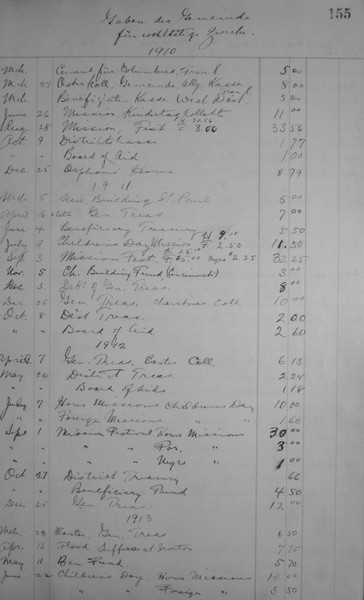 155
Gaben der Gemeinde
für wohltätige Zwecke.
1910
Mch. für Columbus, 5.00
Mch. 25 Osterkoll. Gemeinde Allg. Kasse 8.00
Mch. Kasse West Dist. 5.00
June 26 Mission Kindertag Kollekte 11.00
Aug 28 Mission Fest 3.00 33.56
Oct 9 Distriktkasse 1.77
" " Board of Aid 1.00
Dec 25 Orphans Home 8.79
1911
Mch. 5 New Building St. Paul 5.00
April 16 Gen Treas 7.00
June 4 Beneficiary Treasury 5.50
July 9 Childrens Day Mission 9.00 2.50 11.50
Sept 3 Mission Fest 2.25 32.25
Nov. 5 Ch. Building Fund (Cincinnati) 3.00
Dec 3 Debt of Gen. Treas. 8.00
Dec. 25 Gen Treas. Christmas Coll. 10.00
Oct. 8 Dist Treas. 2.00
" " Board of Aid 2.60
1912
April 7 Gen. Treas. Easter Coll. 6.13
May 26 District Treas. 2.24
Board of Aid 1.18
July 7 Home Missions Childrens Day 10.00
" Foreign Missions " " 1.60
Sept 1 Mission Festival Home Missions 30.00
" " For. " 3.00
" " Negro " 1.00
Oct. 27 District Treasury .66
" " Beneficiary Fund 4.50
Dec 25 Gen. Treas. 12.00
1913
Mch. 23 Easter, Gen. Treas 6.50
Apr. 13 Flood Sufferers 7.75
May 11 Ben Fund. 5.70
June 22 Childrens Day, Home Missions 10.00
" " Foreign " 3.50